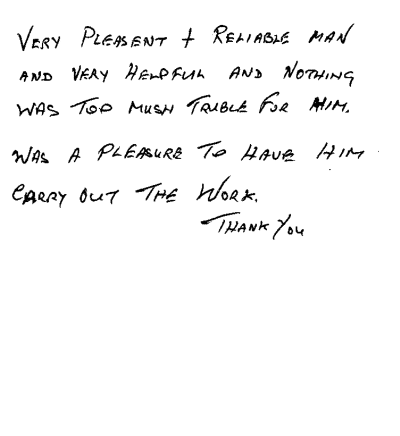 VERY PLEASENT + RELIABLE MAN
AND VERY HELPFUL AND NOTHING
WAS TOO MUSH TRUBLE FOR HIM.
WAS A PLEASURE TO HAVE HIM
CARRY OUT THE WORK.
THANK YOU